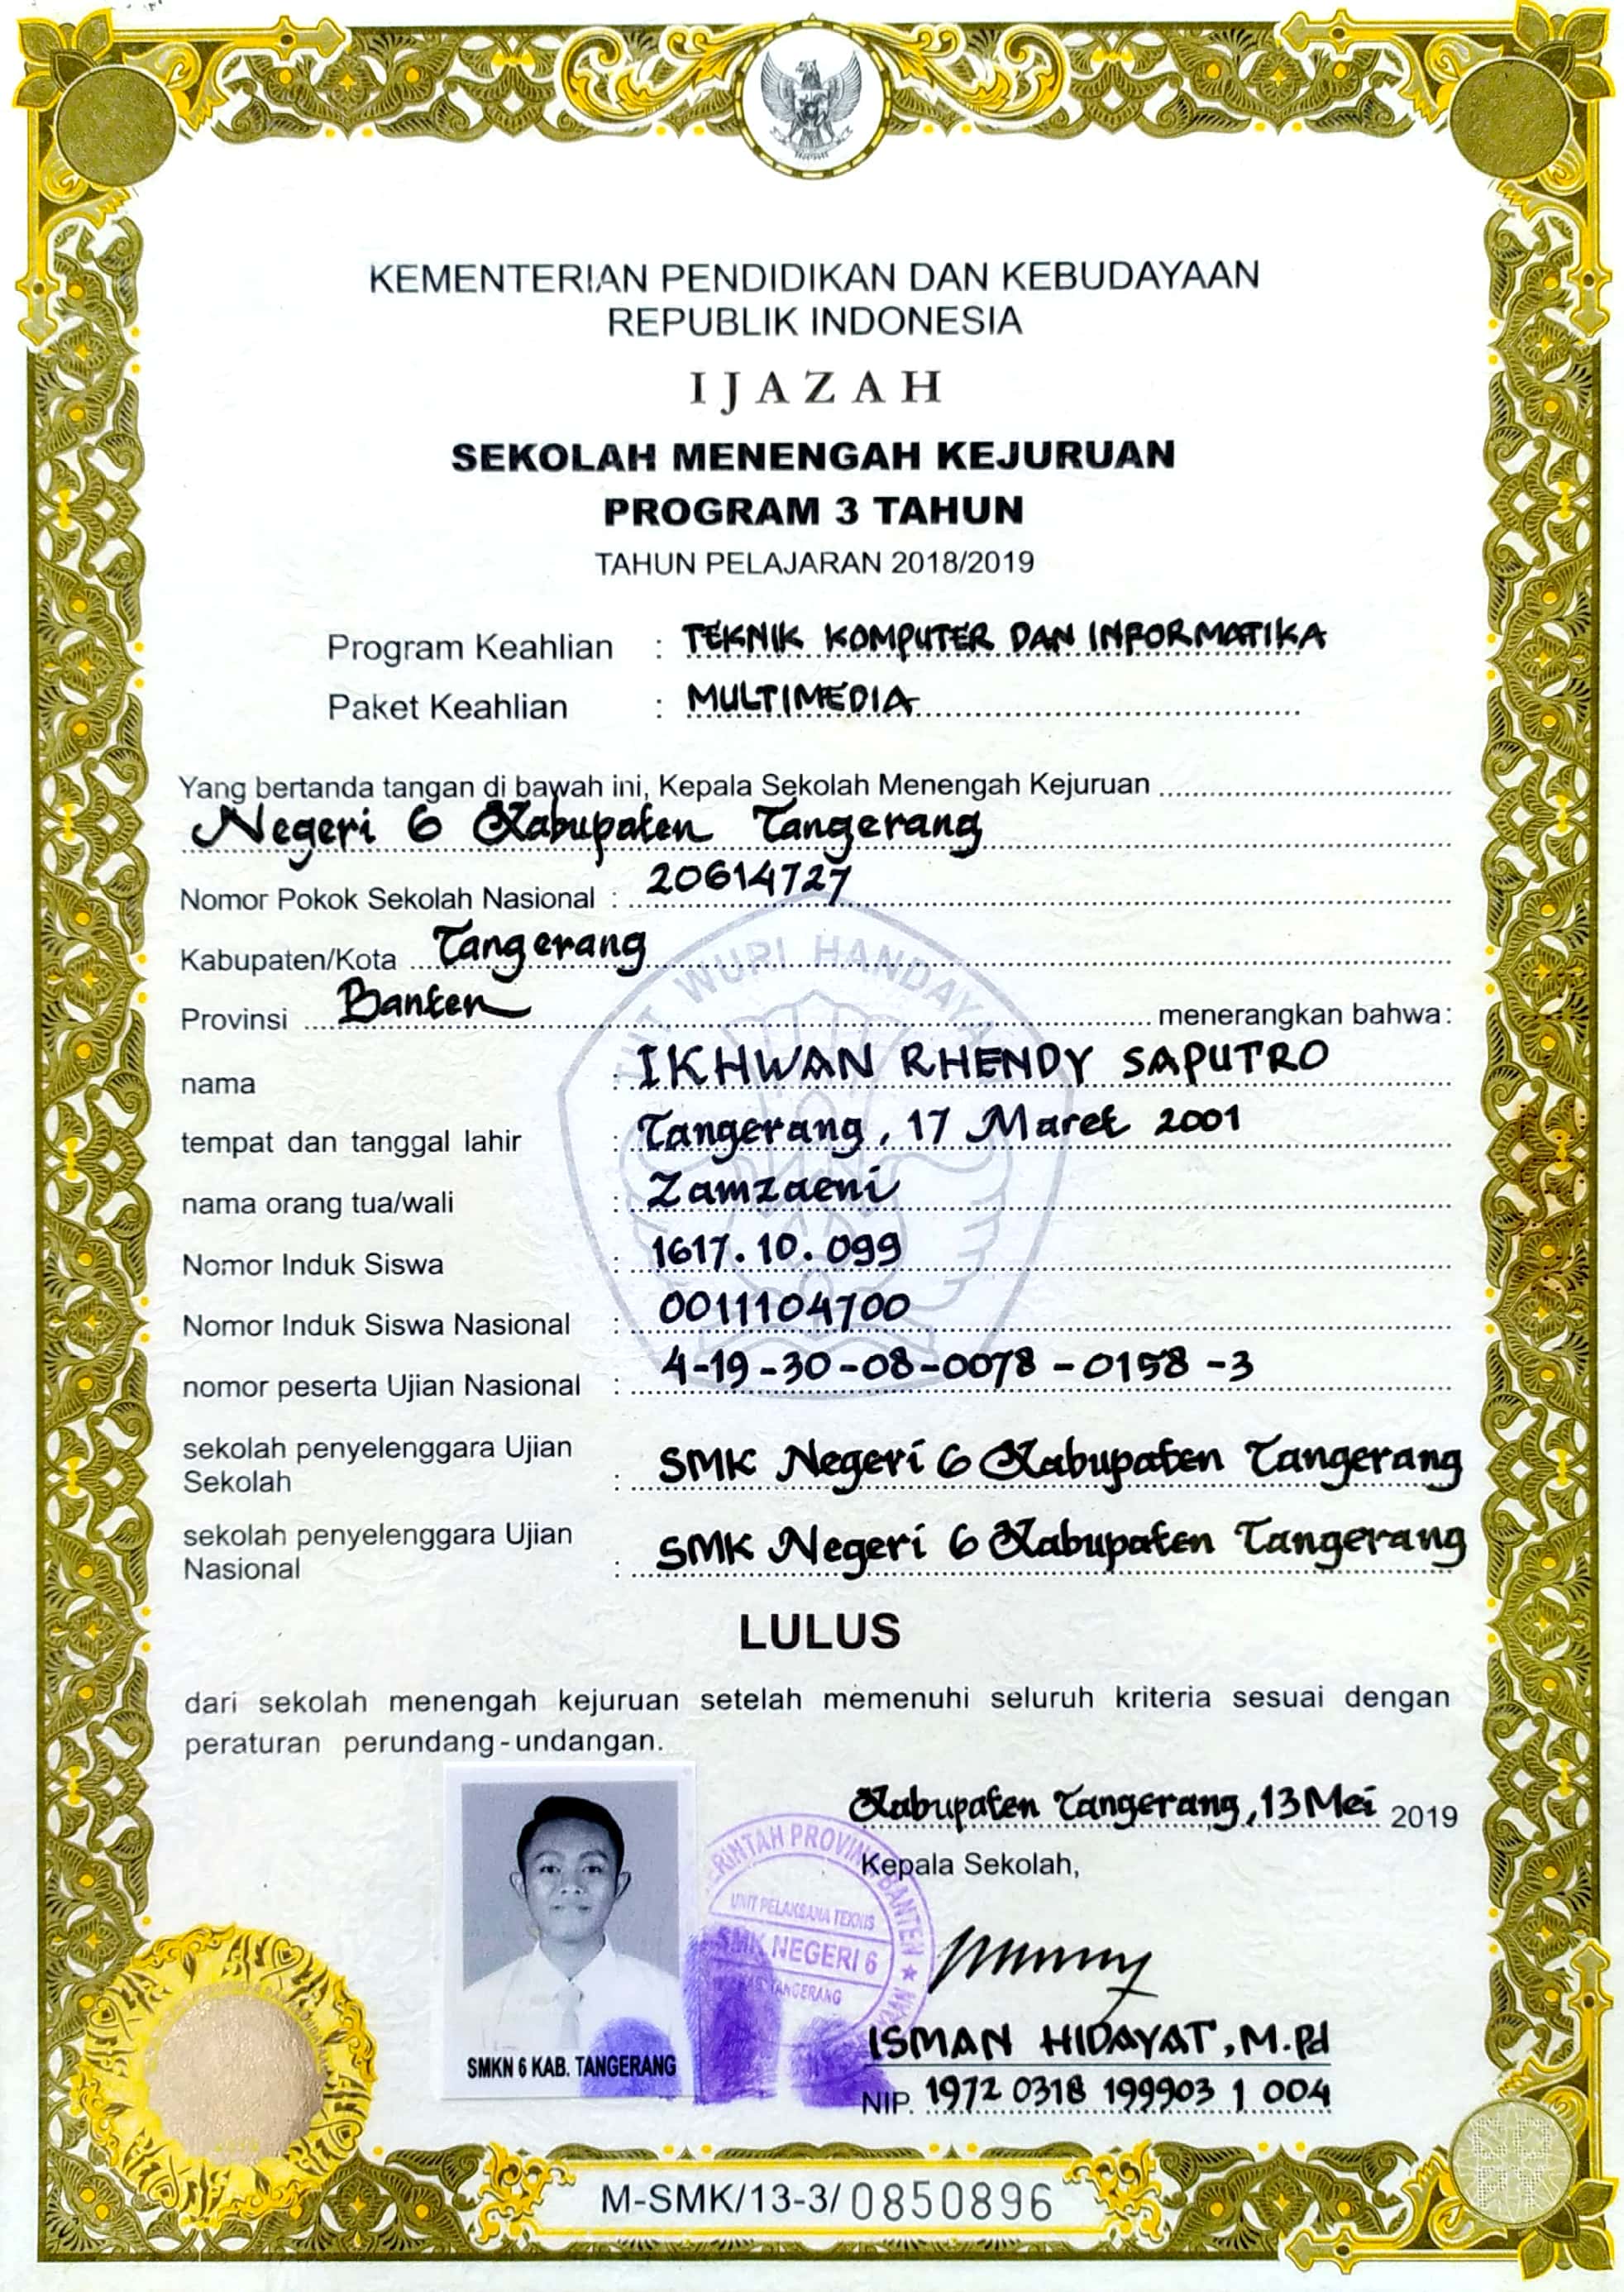 KEMENTERIAN PENDIDIKAN DAN KEBUDAYAAN
REPUBLIK INDONESIA
IJAZAH
SEKOLAH MENENGAH KEJURUAN
PROGRAM 3 TAHUN
TAHUN PELAJARAN 2018/2019
Program Keahlian : TEKNIK KOMPUTER DAN INFORMATIKA
Paket Keahlian : MULTIMEDIA
Yang bertanda tangan di bawah ini, Kepala Sekolah Menengah Kejuruan
Negeri 6 Kabupaten Tangerang
Nomor Pokok Sekolah Nasional : 20614727
Kabupaten/Kota Tangerang
Provinsi Banten menerangkan bahwa:
TUT WURI HANDAYANI
nama : IKHWAN RHENDY SAPUTRO
tempat dan tanggal lahir : Tangerang, 17 Maret 2001
nama orang tua/wali : Zamzaeni
Nomor Induk Siswa : 1617.10.099
Nomor Induk Siswa Nasional : 0011104700
nomor peserta Ujian Nasional : 4-19-30-08-0078-0158-3
sekolah penyelenggara Ujian
Sekolah : SMK Negeri 6 Kabupaten Tangerang
sekolah penyelenggara Ujian
Nasional : SMK Negeri 6 Kabupaten Tangerang
LULUS
dari sekolah menengah kejuruan setelah memenuhi seluruh kriteria sesuai dengan
peraturan perundang-undangan.
Kabupaten Tangerang, 13 Mei 2019
Kepala Sekolah,
PROVINSI BANTEN
UNIT PELAKSANA TEKNIS
SMK NEGERI 6
TANGERANG
ISMAN HIDAYAT, M.Pd
NIP. 1972 0318 199903 1 004
SMKN 6 KAB. TANGERANG
M-SMK/13-3/0850896
COPY